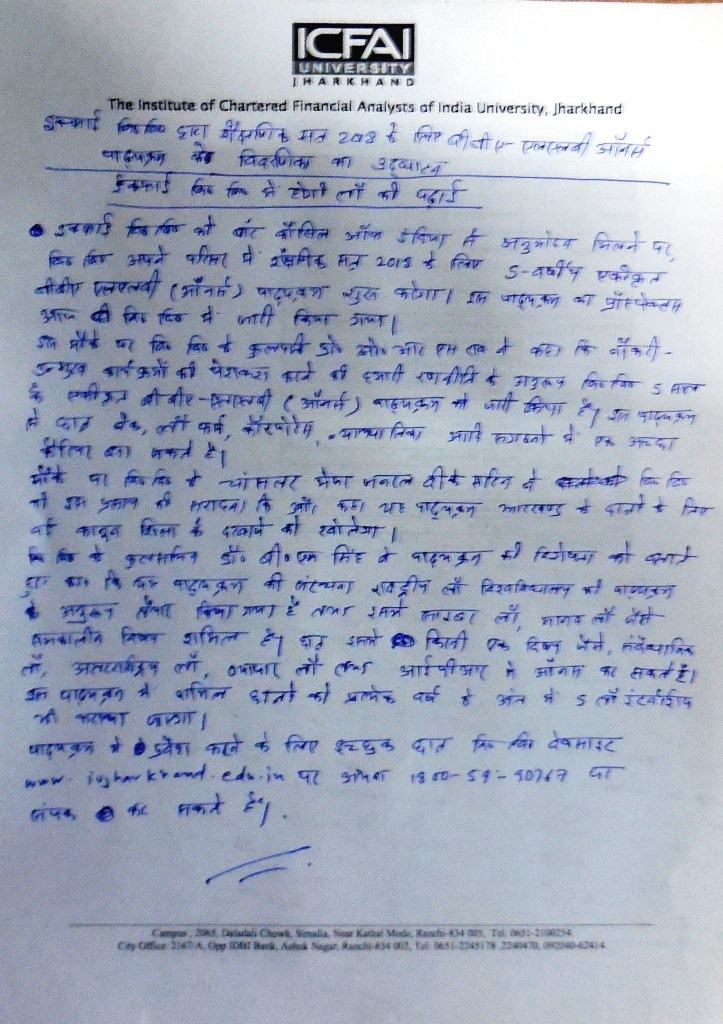 ICFAI
UNIVERSITY
JHARKHAND
The Institute of Chartered Financial Analysts of India University, Jharkhand
इक्फाई वि० वि० द्वारा शैक्षणिक सत्र 2018 के लिए बीबीए-एलएलबी ऑनर्स
पाठ्यक्रम की विवरणिका का उद्घाटन
इक्फाई वि० वि० में होगी लॉ की पढ़ाई
इक्फाई वि० वि० को बार कौंसिल ऑफ इंडिया से अनुमोदन मिलने पर,
वि० वि० अपने परिसर में शैक्षणिक सत्र 2018 के लिए 5-वर्षीय एकीकृत
बीबीए एलएलबी (ऑनर्स) पाठ्यक्रम शुरू करेगा। इस पाठ्यक्रम का प्रॉस्पेक्टस
आज वि० वि० में जारी किया गया।
इस मौके पर वि० वि० के कुलपति प्रो० ओ० आर एस राव ने कहा कि नौकरी-
उन्मुख कार्यक्रमों की पेशकश करने की हमारी रणनीति के अनुरूप वि० वि० 5 साल
के एकीकृत बीबीए-एलएलबी (ऑनर्स) पाठ्यक्रम को जारी किया है। इस पाठ्यक्रम
से छात्र बैंक, लॉ फर्म, कॉरपोरेट, न्यायपालिका आदि संगठनों में एक अच्छा
कैरियर बना सकते हैं।
मौके पर वि० वि० के चांसलर मेजर जनरल वीके सरीन ने वि० वि०
की इस प्रयास की सराहना कि और कहा यह पाठ्यक्रम झारखण्ड के छात्रों के लिए
नई कानून शिक्षा के दरवाजे को खोलेगा।
वि० वि० के कुलसचिव डॉ० बी० एम सिंह ने पाठ्यक्रम की विशेषता को बताते
हुए कहा कि इस पाठ्यक्रम की संरचना राष्ट्रीय लॉ विश्वविद्यालय की पाठ्यक्रम
के अनुरूप तैयार किया गया है तथा इसमें साइबर लॉ, मानव लॉ जैसे
समकालीन विषय शामिल है। छात्र इसमें किसी एक विषय जैसे, संवैधानिक
लॉ, अंतरराष्ट्रीय लॉ, व्यापार लॉ तथा आईपीआर में ऑनर्स कर सकते हैं।
इस पाठ्यक्रम में शामिल छात्रों को प्रत्येक वर्ष के अंत में 5 लॉ इंटर्नशिप
भी कराया जाएगा।
पाठ्यक्रम में प्रवेश करने के लिए इच्छुक छात्र वि० वि० वेबसाइट
www.iujharkhand.edu.in पर अथवा 1800-59-90767 पर
संपर्क कर सकते हैं।
Campus : 2065, Daladali Chowk, Simalia, Near Kathal Mode, Ranchi-834 005, Tel: 0651-2100254
City Office: 2167/A, Opp IDBI Bank, Ashok Nagar, Ranchi-834 002, Tel: 0651-2245178, 2240470, 092040-62414.